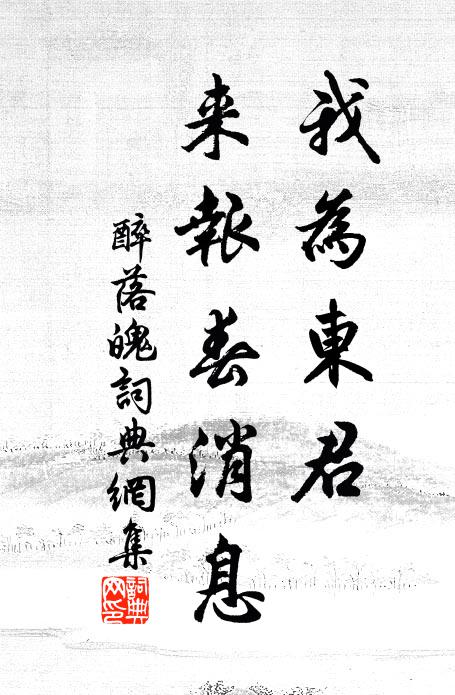 我為東君
来報春消息
醉落魄詞典網集
詞典
网印